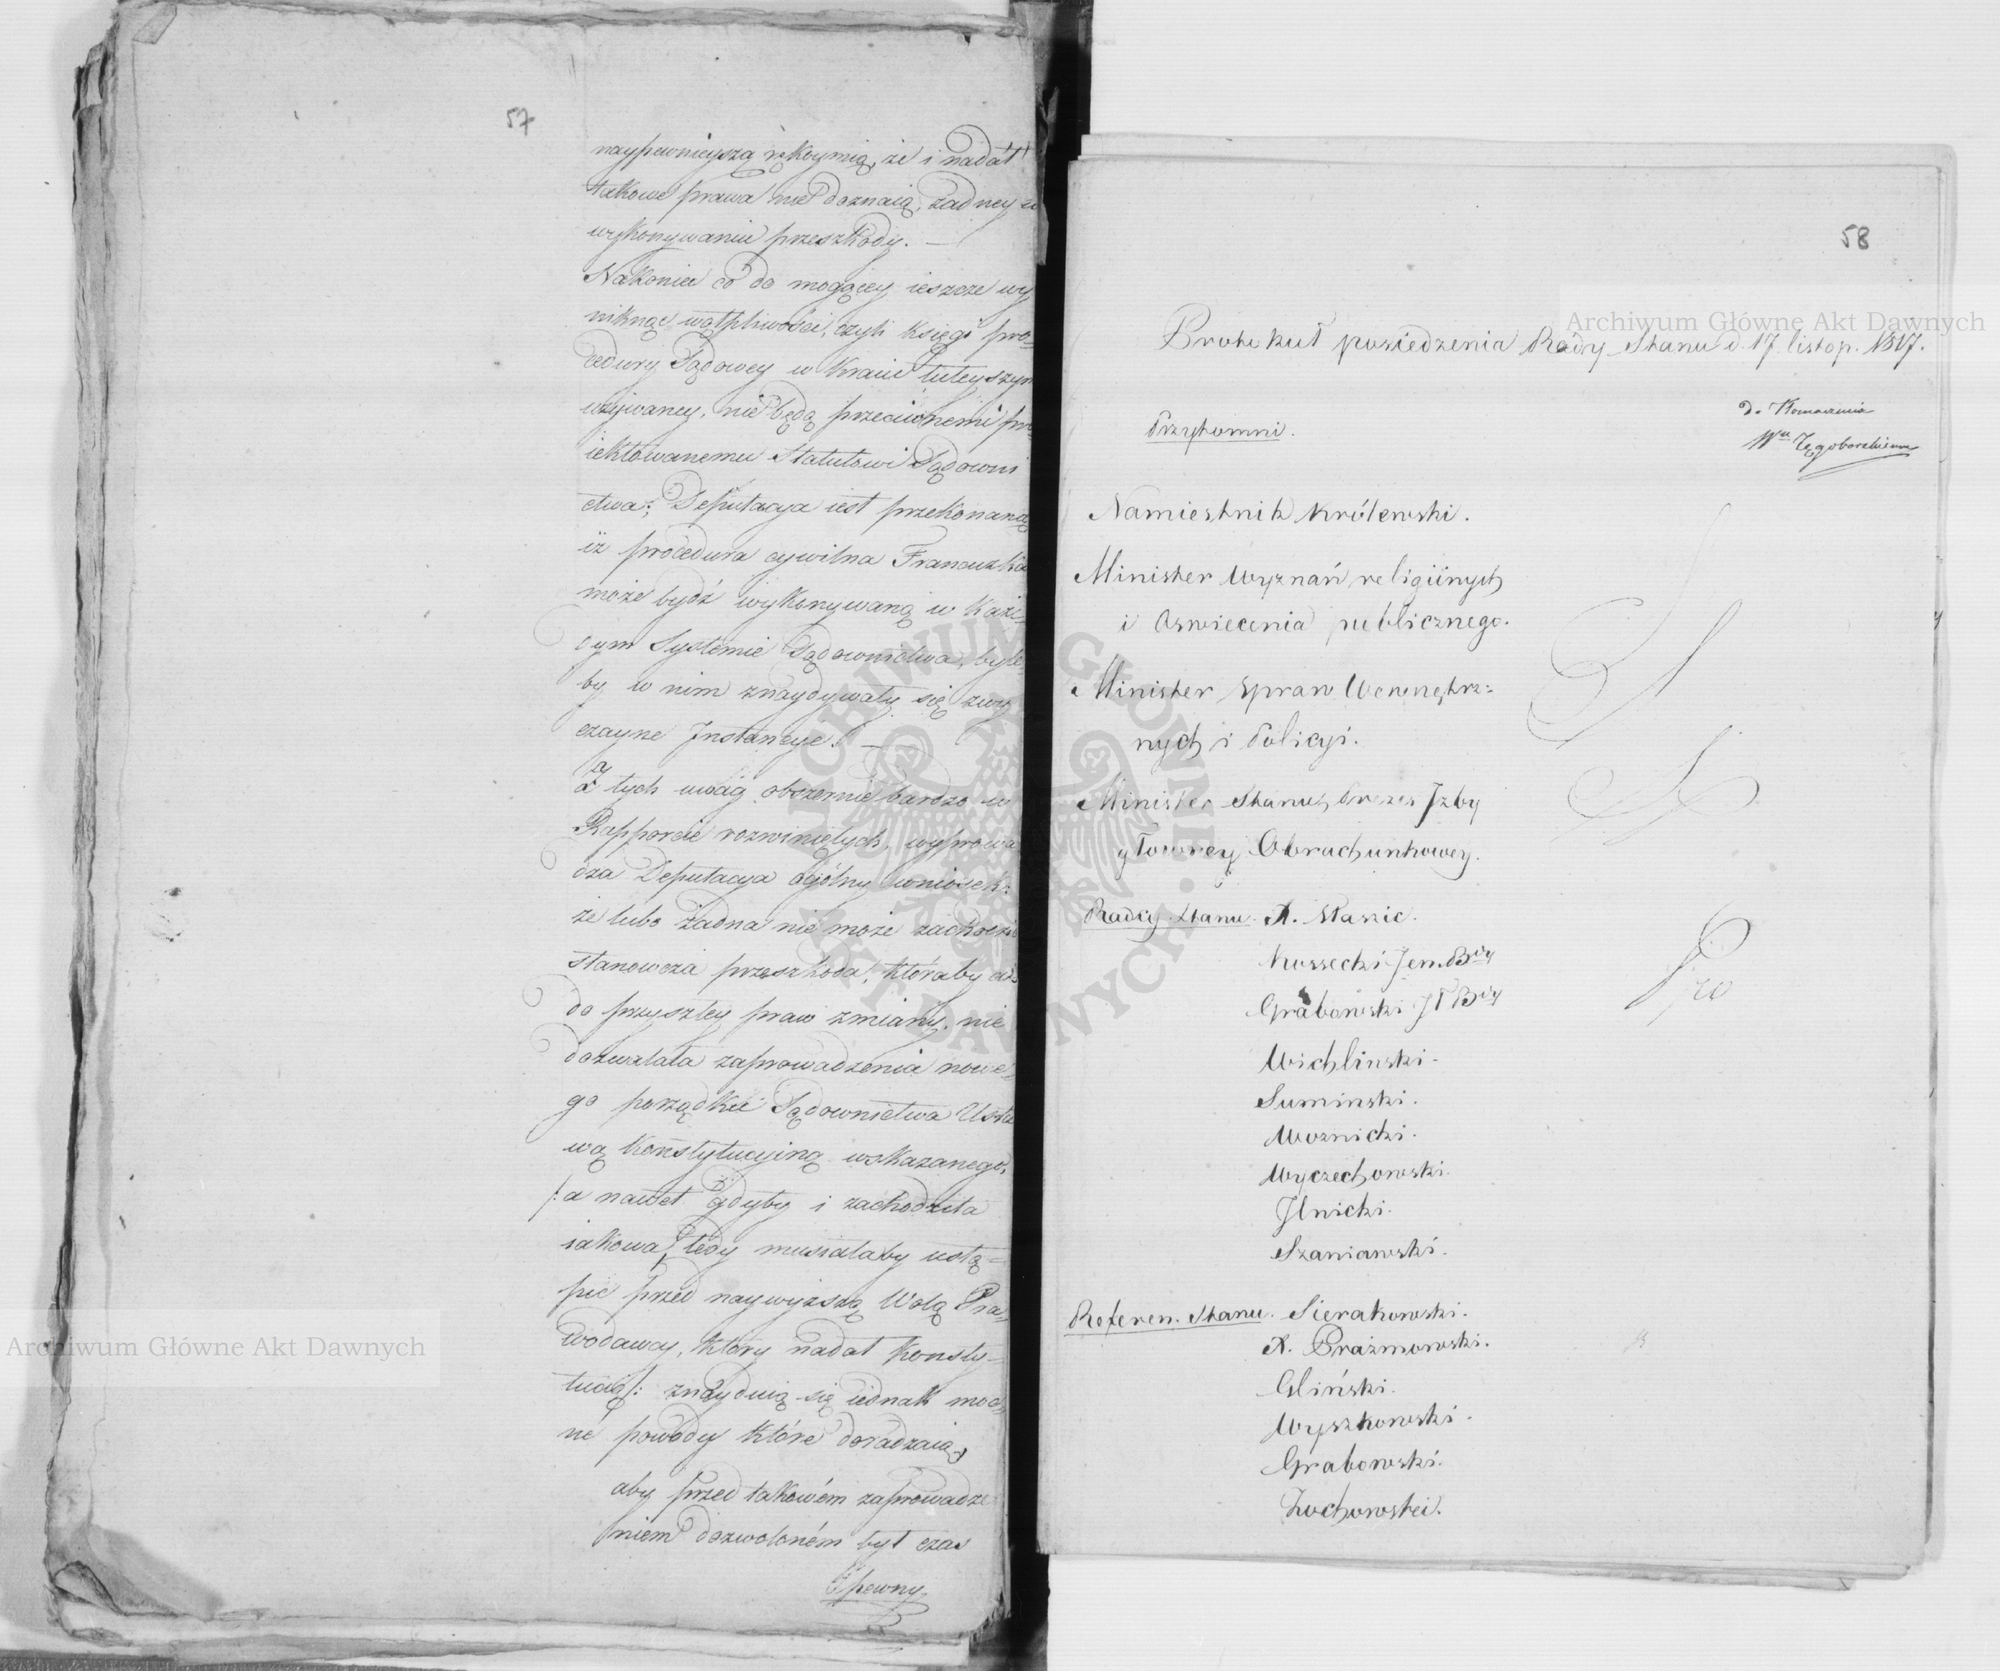 57
naypewnieyszą rękoymią, że i nadal
takowe prawa nie doznaią żadney w
wykonywaniu przeszkody. —
Nakoniec co do mogącey ieszcze wy
niknąć wątpliwości, czyli księgi pro=
cedury Sądowey w kraiu tuteyszym
używaney, nie będą przeciwnemi pro
iektowanemu Statutowi Sądowni
ctwa; Deputacya iest przekonaną
iż procedura cywilna Francuzka
może bydź wykonywaną w każ=
dym Systemie Sądownictwa, byle
by w nim znaydywały się zwy
czayne Instancye. —
Z tych uwag obszernie bardzo w
Rapporcie rozwiniętych, wyprowa
dza Deputacya ogólny wniosek:
że lubo żadna nie może zachodzić
stanowcza przeszkoda, któraby aż
do przyszłey praw zmiany, nie
dozwalała zaprowadzenia nowe=
go porządku Sądownictwa Usta
wą Konstytucyiną wskazanego,
/: a nawet gdyby i zachodziła
iakowa, tedy musiałaby ustą=
pić przed naywyższą Wolą Pra=
wodawcy, który nadał Konsty=
tucią :/ znayduią się iednak moc=
ne powody które doradzaią,
aby przed takowém zaprowadze
niem dozwoloném był czas
pewny
58
Protokuł posiedzenia Rady Stanu d. 17 listop. 1817.
do tłomaczenia
Wmu Tęgoborskiemu
Przytomni.
Namiestnik Królewski.
Minister Wyznań religiinych
i Oswiecenia publicznego.
Minister Spraw Wewnętrz=
nych i Policyi.
Minister Stanu, Prezes Izby
głowney Obrachunkowey.
Radcy Stanu. X. Stasic.
Kossecki Jen. Bdy
Grabowski Jł Bdy
Wichlinski.
Suminski.
Woznicki.
Wyczechowski.
Ilnicki.
Szaniawski.
Referen. Stanu. Sierakowski.
X. Prażmowski.
Gliński.
Wyszkowski.
Grabowski.
Żochowski.
Archiwum Główne Akt Dawnych
Archiwum Główne Akt Dawnych
ARCHIWUM GŁÓWNE AKT DAWNYCH